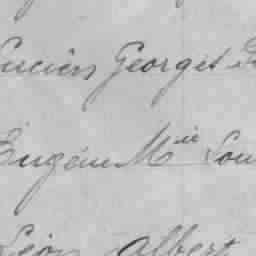 Lucien Georges
Eugénie Mie Lou
Léon Albert